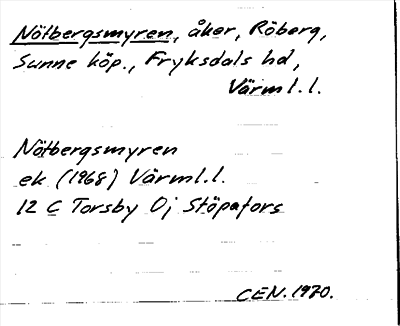 Nötbergsmyren, åker, Röberg,
Sunne köp., Fryksdals hd,
Värml. l.
Nötbergsmyren
ek (1968) Värml. l.
12 C Torsby 0j Stöpafors
CEN. 1970.